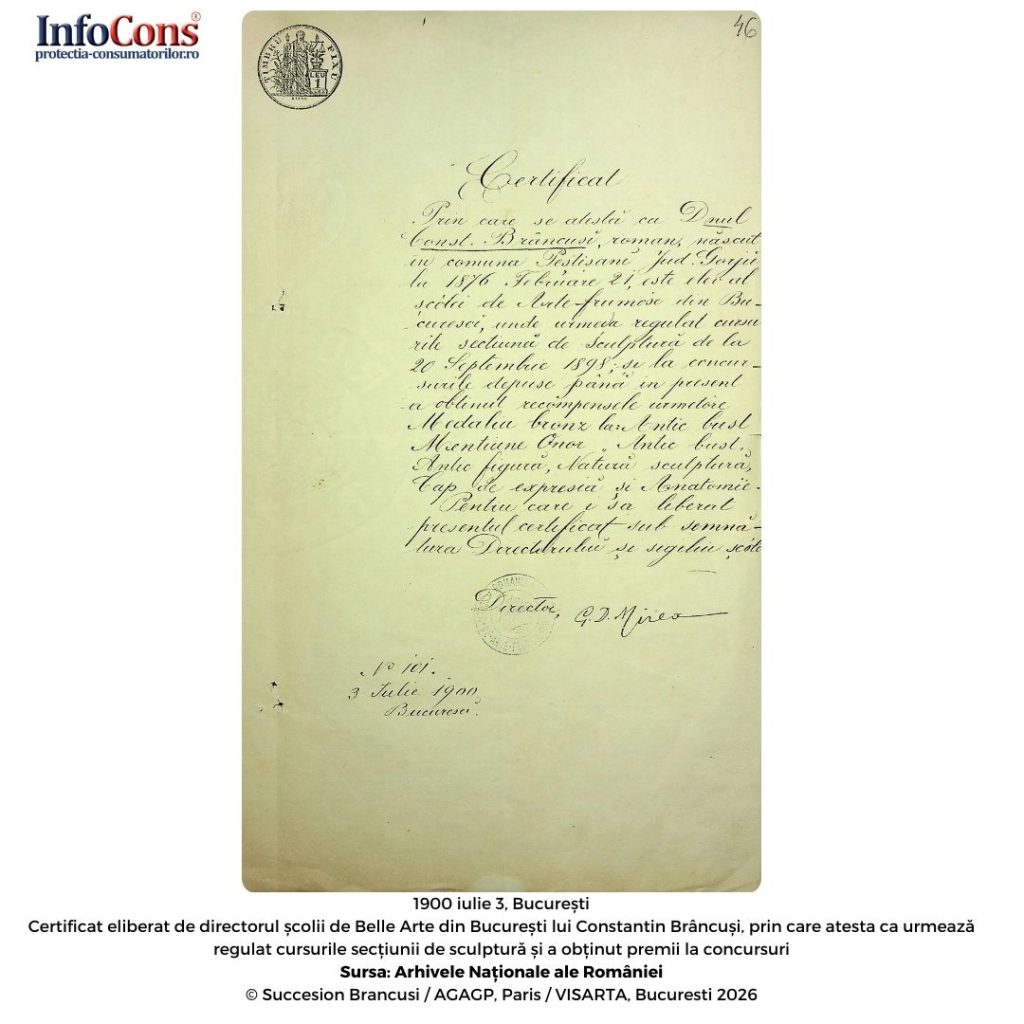 InfoCons®
protectia-consumatorilor.ro
46
TIMBRU FIX
LEU
1
Certificat
Prin care se atestă ca Dnul
Const. Brâncusi, roman, născut
in comuna Pestisani Jud. Gorjiu
la 1876 Februare 21, este elev al
scólei de Arte-frumóse din Bu-
curesci, unde urmeza regulat cursu
rile sectiună de Sculptură de la
20 Septembrie 1898, si la concur-
surile depuse până in present
a obtinut recompensele urmetóre
Medalia bronz la: Antic bust
Mentiune Onor „ Antic bust,
Antic figură, Natură sculptură,
Cap de expresiă și Anatomie.
Pentru care i sa liberat
presentul certificat sub semnă-
tura Directorului și sigiliu scóle
Director, G. D. Mirea
No 101.
3 Iulie 1900
Bucuresci.
1900 iulie 3, București
Certificat eliberat de directorul școlii de Belle Arte din București lui Constantin Brâncuși, prin care atesta ca urmează
regulat cursurile secțiunii de sculptură și a obținut premii la concursuri
Sursa: Arhivele Naționale ale României
© Succesion Brancusi / AGAGP, Paris / VISARTA, Bucuresti 2026